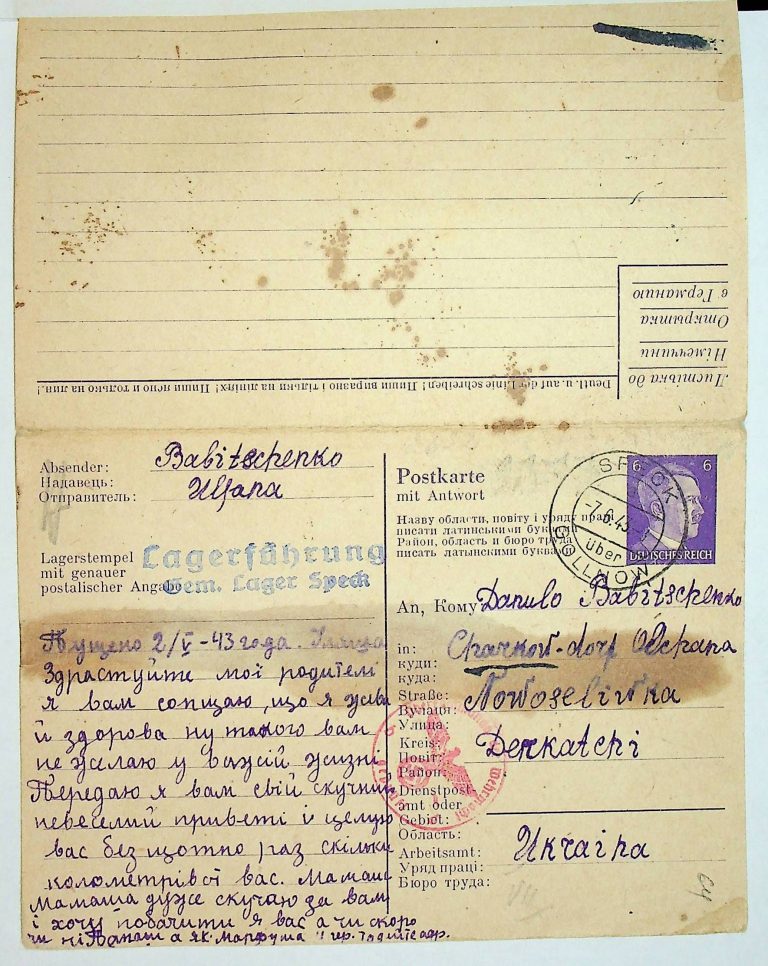 Листівка до
Німеччини
Открытка
в Германию
Deutl. u. auf der Linie schreiben! Пиши виразно і тільки на лініях! Пиши ясно и только на лин.!
Absender: Babitschenko
Надавець: Uljana
Отправитель:
Lagerstempel
mit genauer
postalischer Angabe
Lagerführung
Gem. Lager Speck
Postkarte
mit Antwort
Назву области, повіту і уряду праці
писати латинськими буквами
Район, область и бюро труда
писать латынскими буквами
6 6
DEUTSCHES REICH
SPECK
-7.6.43.
über
GOLLNOW
An, Кому Danulo Babitschenko
in: Charkow-dorf Olchana
куди:
куда:
Straße: Nowoseliwka
Вулиця:
Улица:
Kreis: Derkatchi
Повіт:
Район:
Dienstpost-
amt oder
Gebiet:
Область:
Arbeitsamt: Ukraina
Уряд праці:
Бюро труда:
Пущено 2/V-43 года.
Здраствуйти мої родителі
я вам сопщаю, що я жива
й здорова ну такого вам
не желаю у вашій жизні
Передаю я вам свій скучний
невеселий привєті і целую
вас без щотно раз скільки
колометрівот вас. Мамаша
Мамаша дуже скучаю за вам
і хочу побачити я вас а чи скоро
чи ні Папаш а як Марфуша
64